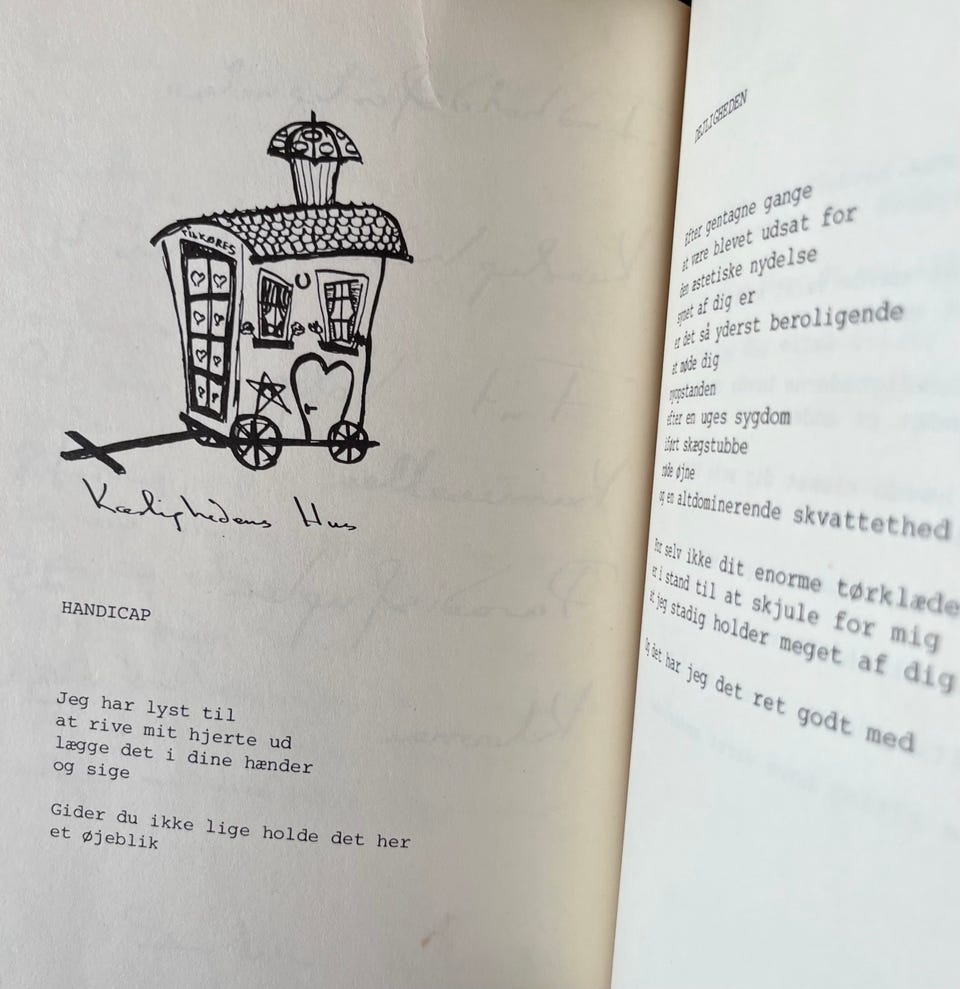 TILKØRES
Kærlighedens Hus
HANDICAP
Jeg har lyst til
at rive mit hjerte ud
lægge det i dine hænder
og sige
Gider du ikke lige holde det her
et øjeblik
DEJLIGHEDEN
Efter gentagne gange
at være blevet udsat for
den æstetiske nydelse
synet af dig er
er det så yderst beroligende
at møde dig
nyopstanden
efter en uges sygdom
iført skægstubbe
røde øjne
og en altdominerende skvattethed
For selv ikke dit enorme tørklæde
er i stand til at skjule for mig
at jeg stadig holder meget af dig
Og det har jeg det ret godt med